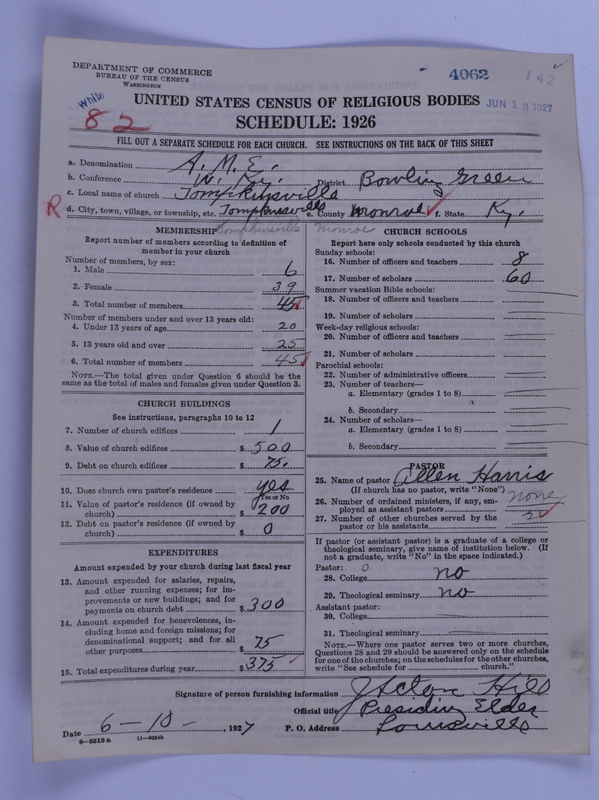 DEPARTMENT OF COMMERCE
BUREAU OF THE CENSUS
WASHINGTON
4062
142
White
82
UNITED STATES CENSUS OF RELIGIOUS BODIES
JUN 13 1927
SCHEDULE: 1926
FILL OUT A SEPARATE SCHEDULE FOR EACH CHURCH. SEE INSTRUCTIONS ON THE BACK OF THIS SHEET
a. Denomination A. M. E.
b. Conference W. Ky. District Bowling Green
c. Local name of church Tompkinsville
R d. City, town, village, or township, etc. Tompkinsville e. County Monroe f. State Ky.
Tompkinsville Monroe
MEMBERSHIP
Report number of members according to definition of
member in your church
Number of members, by sex:
1. Male 6
2. Female 39
3. Total number of members 45
Number of members under and over 13 years old:
4. Under 13 years of age 20
5. 13 years old and over 25
6. Total number of members 45
NOTE.—The total given under Question 6 should be the
same as the total of males and females given under Question 3.
CHURCH BUILDINGS
See instructions, paragraphs 10 to 12
7. Number of church edifices 1
8. Value of church edifices $ 500
9. Debt on church edifices $ 75.
10. Does church own pastor's residence yes
Yes or No
11. Value of pastor's residence (if owned by
church) $ 200
12. Debt on pastor's residence (if owned by
church) $ 0
EXPENDITURES
Amount expended by your church during last fiscal year
13. Amount expended for salaries, repairs,
and other running expenses; for im-
provements or new buildings; and for
payments on church debt $ 300
14. Amount expended for benevolences, in-
cluding home and foreign missions; for
denominational support; and for all
other purposes $ 75
15. Total expenditures during year $ 375
CHURCH SCHOOLS
Report here only schools conducted by this church
Sunday schools:
16. Number of officers and teachers 8
17. Number of scholars 60
Summer vacation Bible schools:
18. Number of officers and teachers
19. Number of scholars
Week-day religious schools:
20. Number of officers and teachers
21. Number of scholars
Parochial schools:
22. Number of administrative officers
23. Number of teachers—
a. Elementary (grades 1 to 8)
b. Secondary
24. Number of scholars—
a. Elementary (grades 1 to 8)
b. Secondary
PASTOR
25. Name of pastor Allen Harris
(If church has no pastor, write "None")
26. Number of ordained ministers, if any, em-
ployed as assistant pastors none
27. Number of other churches served by the
pastor or his assistants
If pastor (or assistant pastor) is a graduate of a college or
theological seminary, give name of institution below. (If
not a graduate, write "No" in the space indicated.)
Pastor: 0
28. College no
29. Theological seminary no
Assistant pastor:
30. College
31. Theological seminary
NOTE.—Where one pastor serves two or more churches,
Questions 28 and 29 should be answered only on the schedule
for one of the churches; on the schedules for the other churches,
write "See schedule for church."
Signature of person furnishing information J Acton Hill
Official title Presidin Elder
Date 6-10-, 1927 P. O. Address Louisville
8-5518a 11-9024b